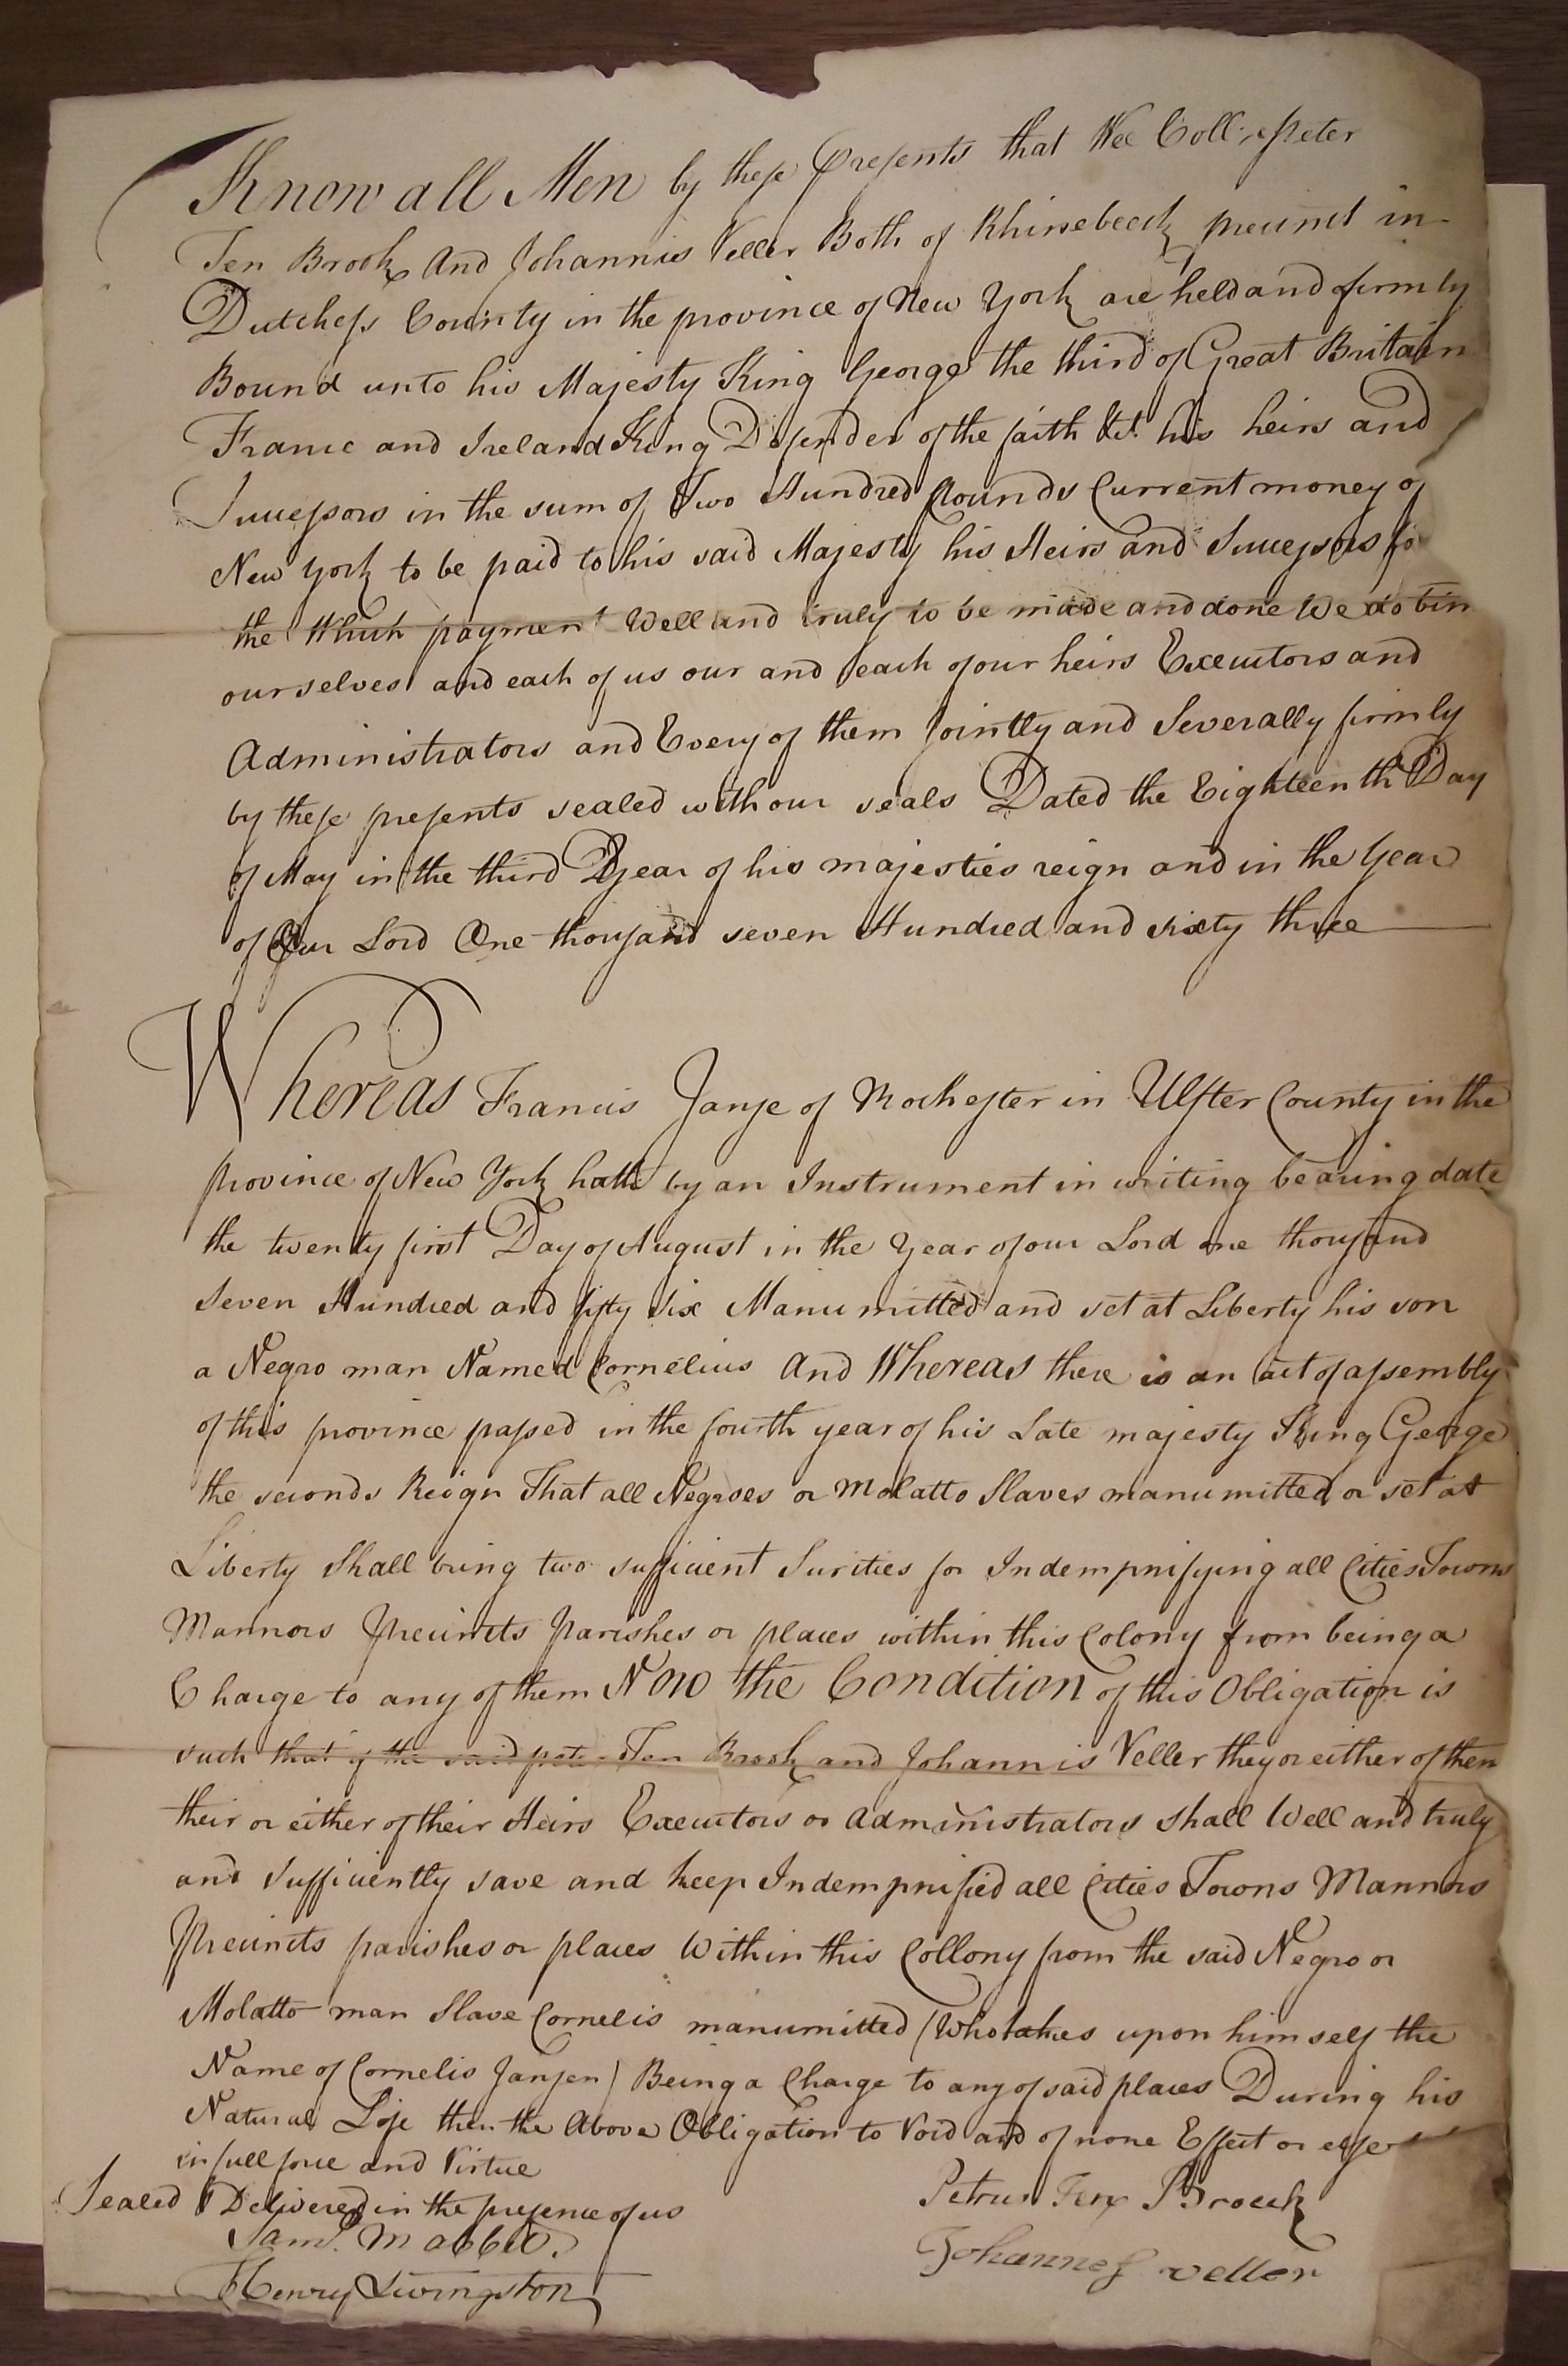 Know all Men by these Presents that Wee Coll: Peter
Ten Brook And Johannis Veller Both of Rhinebeek precinct in
Dutchess County in the province of New York are held and firmly
Bound unto his Majesty King George the third of Great Britain
France and Ireland King Defender of the faith &c: his heirs and
Successors in the sum of Two Hundred Pounds Current money of
New York to be paid to his said Majesty his Heirs and Successors fo
the Which payment Well and truly to be made and done We do bin
ourselves and each of us our and each of our heirs Executors and
Administrators and Every of them Jointly and Severally firmly
by these presents sealed with our seals Dated the Eighteenth Day
of May in the third year of his majesties reign and in the Year
of Our Lord One thousand seven Hundred and sixty three
Whereas Francis Janse of Rochester in Ulster County in the
province of New York hath by an Instrument in writing bearing date
the twenty first Day of August in the Year of our Lord one thousand
Seven Hundred and fifty Six Manumitted and set at Liberty his son
a Negro man Named Cornelius And Whereas there is an act of assembly
of this province passed in the fourth year of his Late majesty King George
the seconds Reign That all Negroes or Molatto Slaves manumitted or set at
Liberty Shall bring two sufficient Surities for Indempnifying all Cities Towns
Mannors Precincts Parishes or places within this Colony from being a
Charge to any of them Now the Condition of this Obligation is
such that if the said peter Ten Brook and Johannis Veller they or either of them
their or either of their Heirs Executors or Administrators shall Well and truly
and Sufficiently save and keep Indempnified all Cities Towns Mannors
Precincts parishes or places Within this Collony from the said Negro or
Molatto man Slave Cornelis manumitted (Who takes upon himself the
Name of Cornelis Jansen) Being a Charge to any of said places During his
Natural Life then the Above Obligation to Void and of none Effect or else
in full force and Virtue
Sealed & Delivered in the presence of us
Petrus Ten Broeck
Saml. Mabbit.
Johannes veller
Henry Livingston